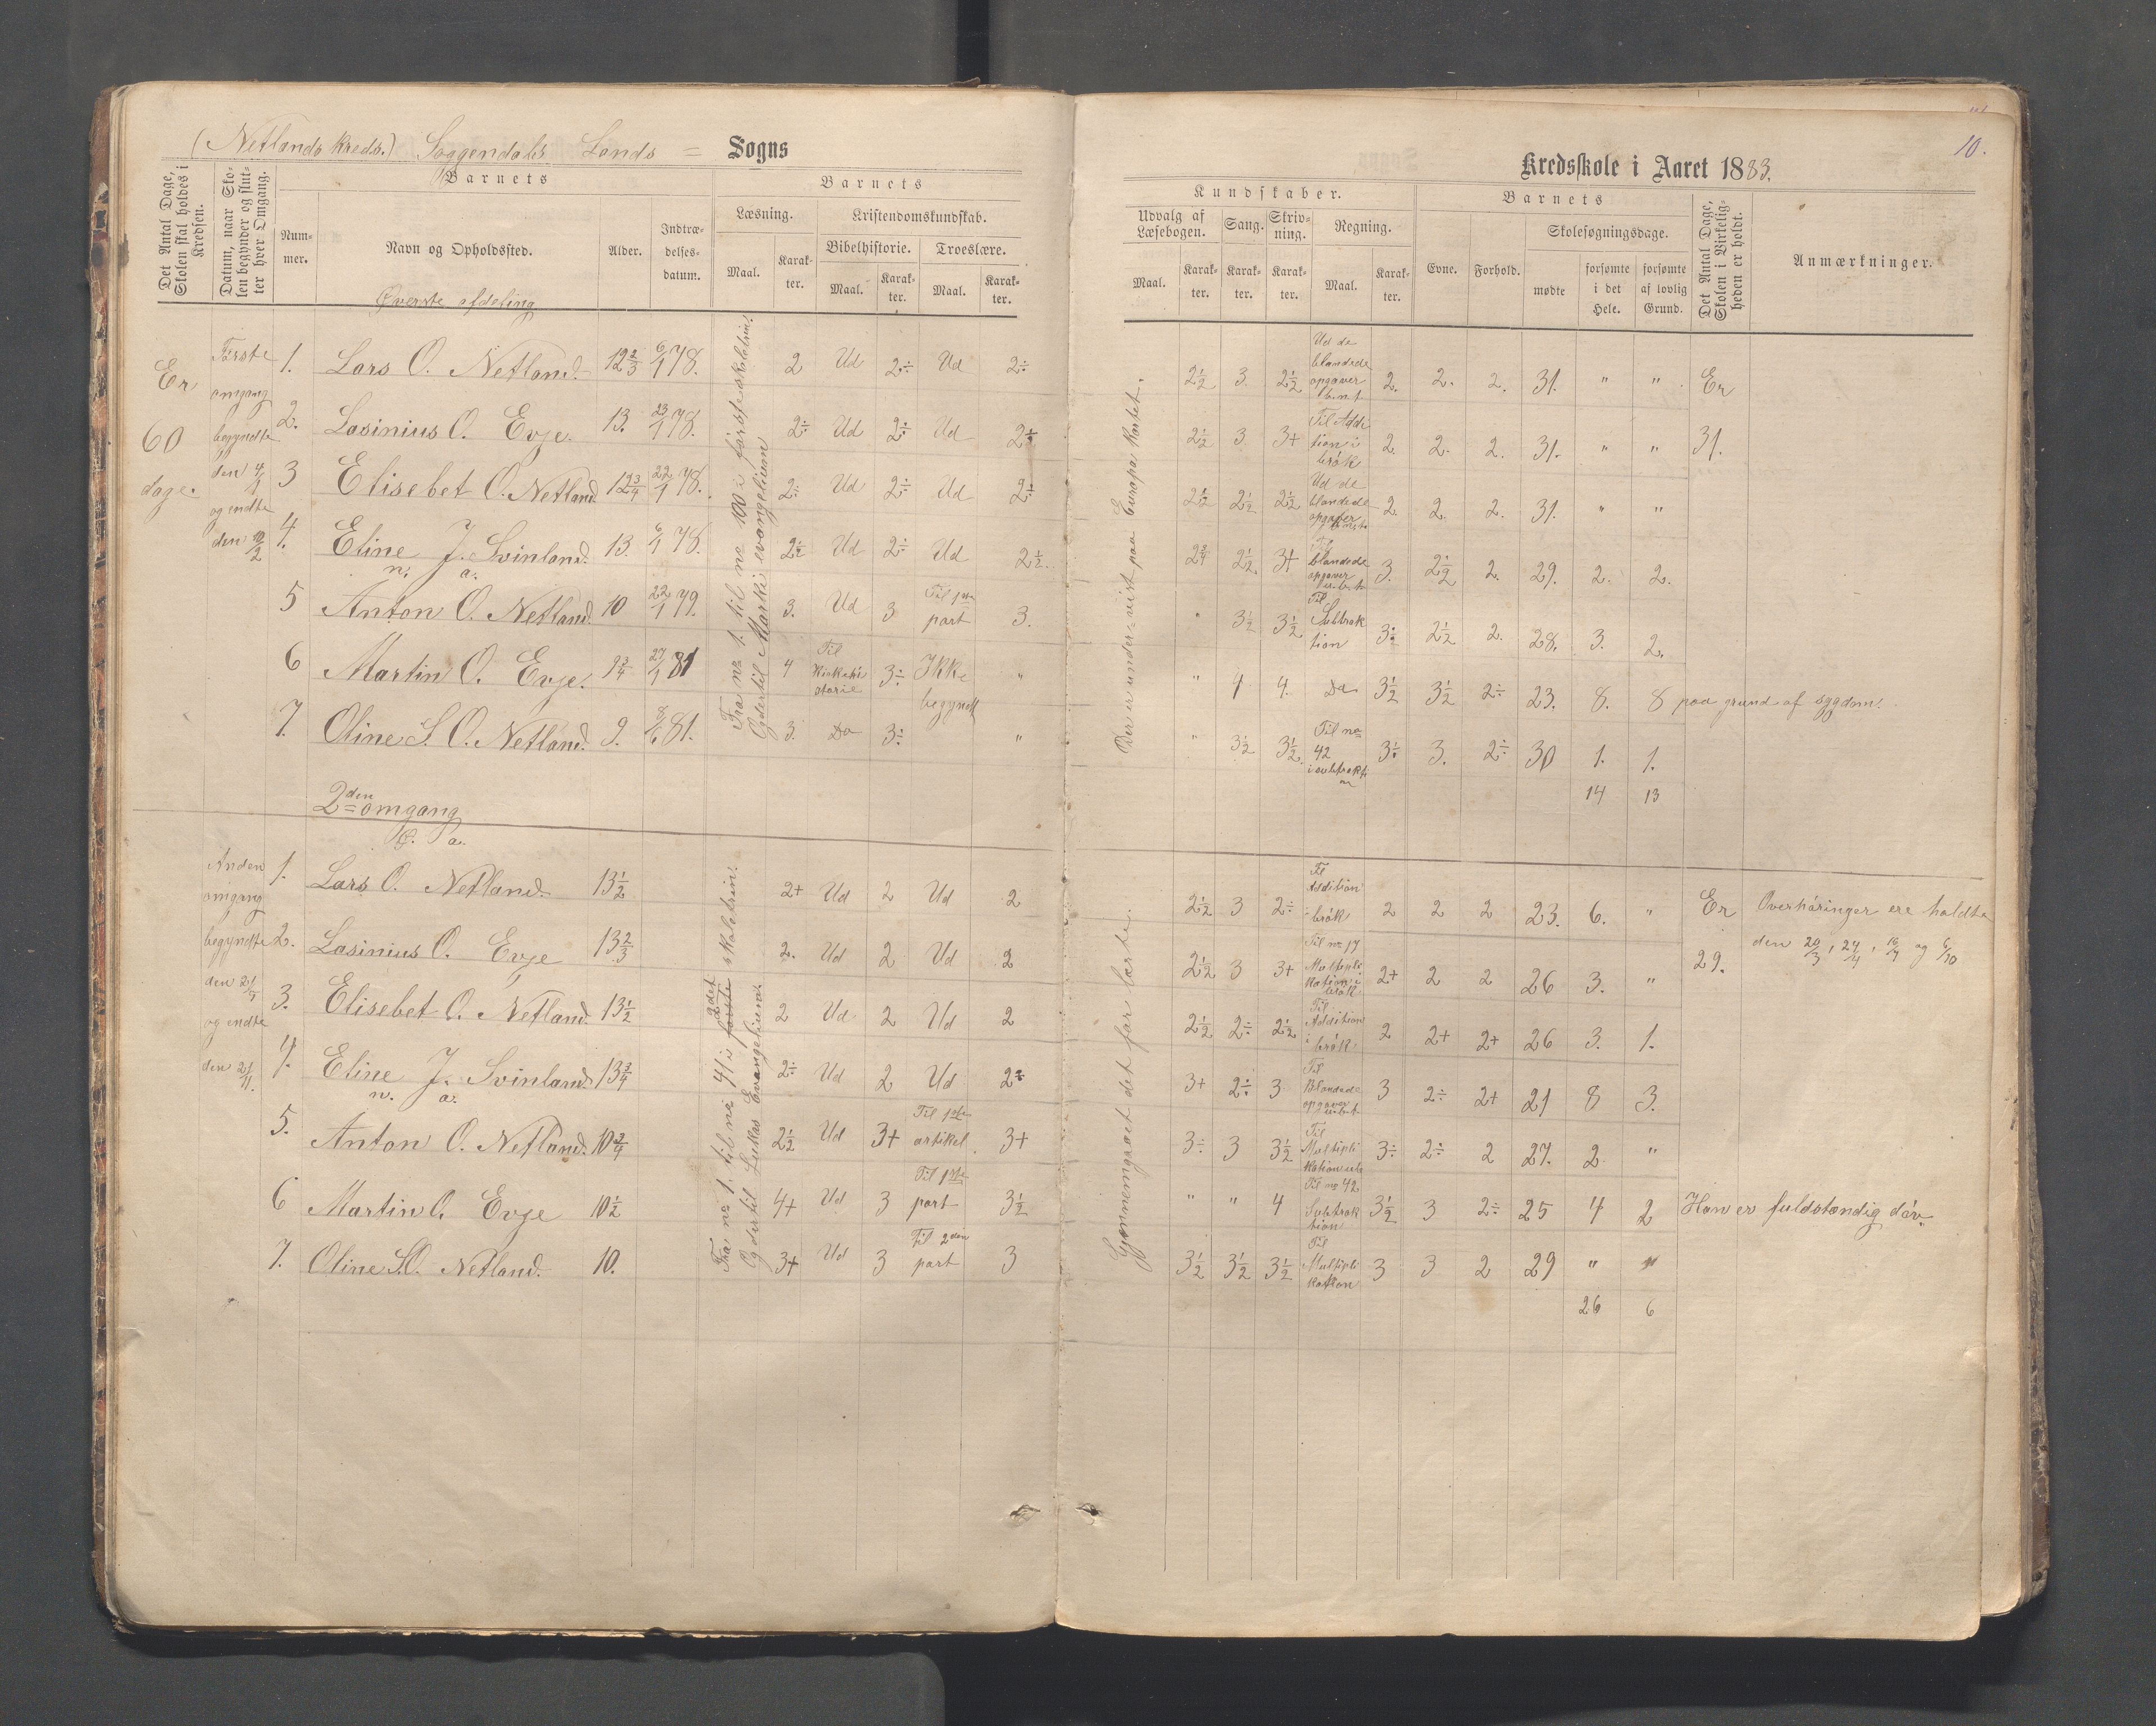 (Netlands kreds.) Soggendals Lands = Sogns
Kredsskole i Aaret 1883.
10.
Det Antal Dage, Skolen skal holdes i Kredsen.
Datum, naar Skolen begynder og slutter hver Omgang.
Barnets
Nummer.
Navn og Opholdssted.
Alder.
Indtrædelsesdatum.
Barnets
Læsning.
Maal.
Karakter.
Kristendomskundskab.
Bibelhistorie.
Maal.
Karakter.
Troeslære.
Maal.
Karakter.
Kundskaber.
Udvalg af Læsebogen.
Maal.
Karakter.
Sang.
Karakter.
Skrivning.
Karakter.
Regning.
Maal.
Karakter.
Barnets
Evne.
Forhold.
Skolesøgningsdage.
mødte
forsømte i det Hele.
forsømte af lovlig Grund.
Det Antal Dage, Skolen i Virkeligheden er holdt.
Anmærkninger.
Øverste afdeling
Er 60 dage.
Første omgang begyndte den 4/1 og endte den 10/2
Fra no 1. til no 100 i første skoletrin.
Og dertil Marki evangelium
Der er undervist paa Europa Kartet.
1. Lars O. Netland. 12 2/3 6/1 78. 2 Ud 2÷ Ud 2÷ 2 1/2 3. 2 1/2 Ud de blandede opgaver 2. 2. 2. 31. " " Er
2. Lasinius O. Evje. 13. 23/1 78. 2÷ Ud 2÷ Ud 2÷ 2 1/2 3. 3+ Til Addition i brøk 2. 2. 2. 31. " " 31.
3 Elisebet O. Netland 12 3/4 22/1 78. 2÷ Ud 2÷ Ud 2÷ 2 1/2 2 1/2 2 1/2 Ud de blandede opgaver 2. 2. 2. 31. " "
4. Eline J. Svinland. 13. 6/1 78. 2 1/2 Ud 2÷ Ud 2 1/2. 2 1/2. 3+ blandede opgaver 3. 2 1/2 2. 29. 2. 2.
n. a.
5 Anton O. Netland. 10 22/1 79. 3. Ud 3 Til 1ste part 3. " 3 1/2 3 1/2 Til Subtraktion 3 1/2 2 1/2 2. 28. 3. 2.
6 Martin O. Evje. 9 3/4 27/1 81 4 Til Kirkehistorie 3÷ Ikke begyndt " " 4 4. Do 3 1/2 3 1/2 2÷ 23. 8. 8 paa grund af sygdom.
7. Oline S. O. Netland. 9. 8/6 81. 3. Do 3÷ " " 3 1/2 3 1/2 Til no 42 i subtraktion 3÷ 3. 2÷ 30 1. 1.
14 13
2den omgang
Anden omgang begyndte den 21/7 og endte den 21/11.
Fra no 1. til no 41 i første 2det skoletrin.
Og dertil Lukas Evangelium.
Gjennemgaaet det før lærte.
1. Lars O. Netland. 13 1/2 2+ Ud 2 Ud 2 2 1/2 3 2÷ Til Addition i brøk 2 2 2 23. 6. " Er Overhøringer ere holdte
2. Lasinius O. Evje 13 2/3 2. Ud 2 Ud 2 2 1/2 3 3+ Til no 17 Multiplikation i brøk 2+ 2 2 26 3. " 29. den 20/3, 24/4, 16/7 og 6/10
3. Elisebet O. Netland. 13 1/2 2 Ud 2 Ud 2 2 1/2 2÷ 2 1/2 Til Addition i brøk 2 2+ 2+ 26 3. 1.
4. Eline J. Svinland 13 3/4 2÷ Ud 2 Ud 2÷ 3+ 2÷ 3 Til Blandede opgaver 3 2÷ 2+ 21 8 3.
n. a.
5. Anton O. Netland. 10 3/4 2 1/2 Ud 3+ Til 1ste artikel 3+ 3÷ 3 3 1/2 Til Multiplikation 3÷ 2÷ 2 27. 2. "
6 Martin O. Evje 10 1/2 4+ Ud 3 Til 1ste part 3 1/2 " " 4 Til no 42 Subtraktion 3 1/2 3 2÷ 25 4 2 Han er fuldstændig døv.
7. Oline S.O. Netland. 10. 3+ Ud 3 Til 2den part 3 3 1/2 3 1/2 3 1/2 Til Multiplikation 3 3 2 29 " "
26 6